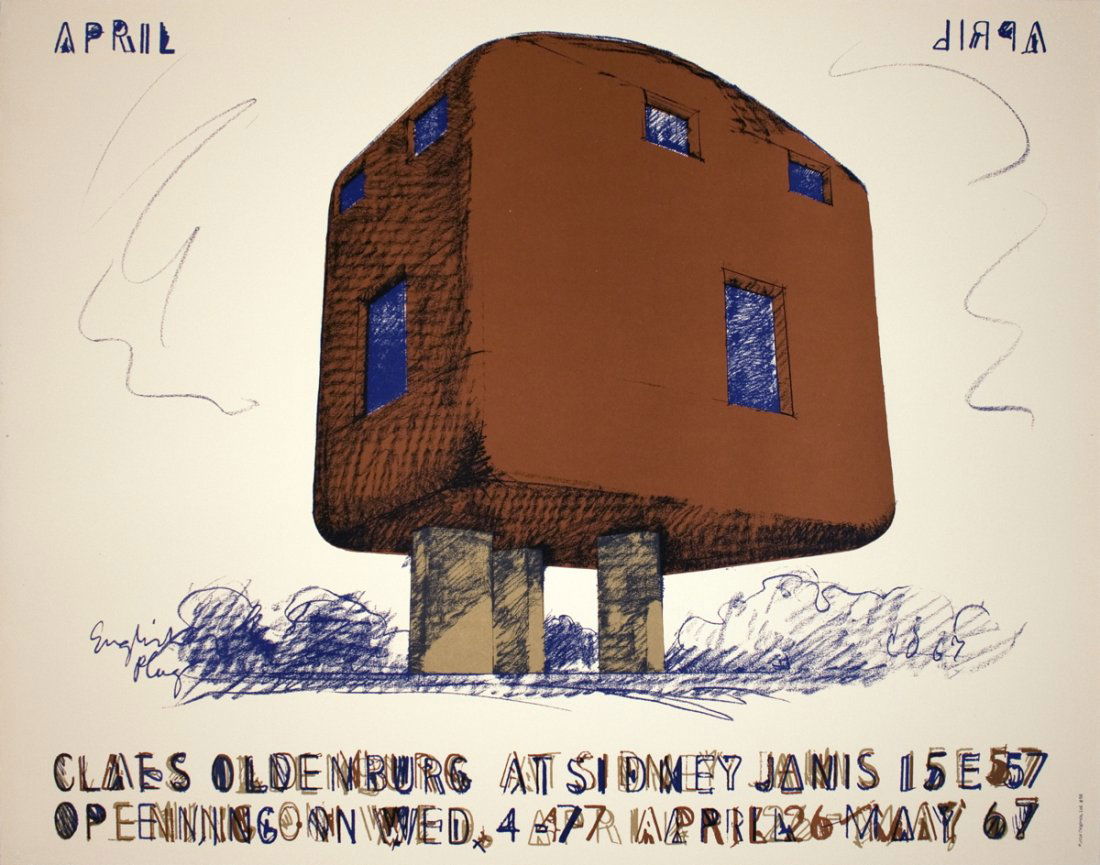 APRIL
APRIL
English
Plug
CO 67
CLAES OLDENBURG AT SIDNEY JANIS 15 E 57
OPENING ON WED. 4-7 APRIL 26-MAY 67